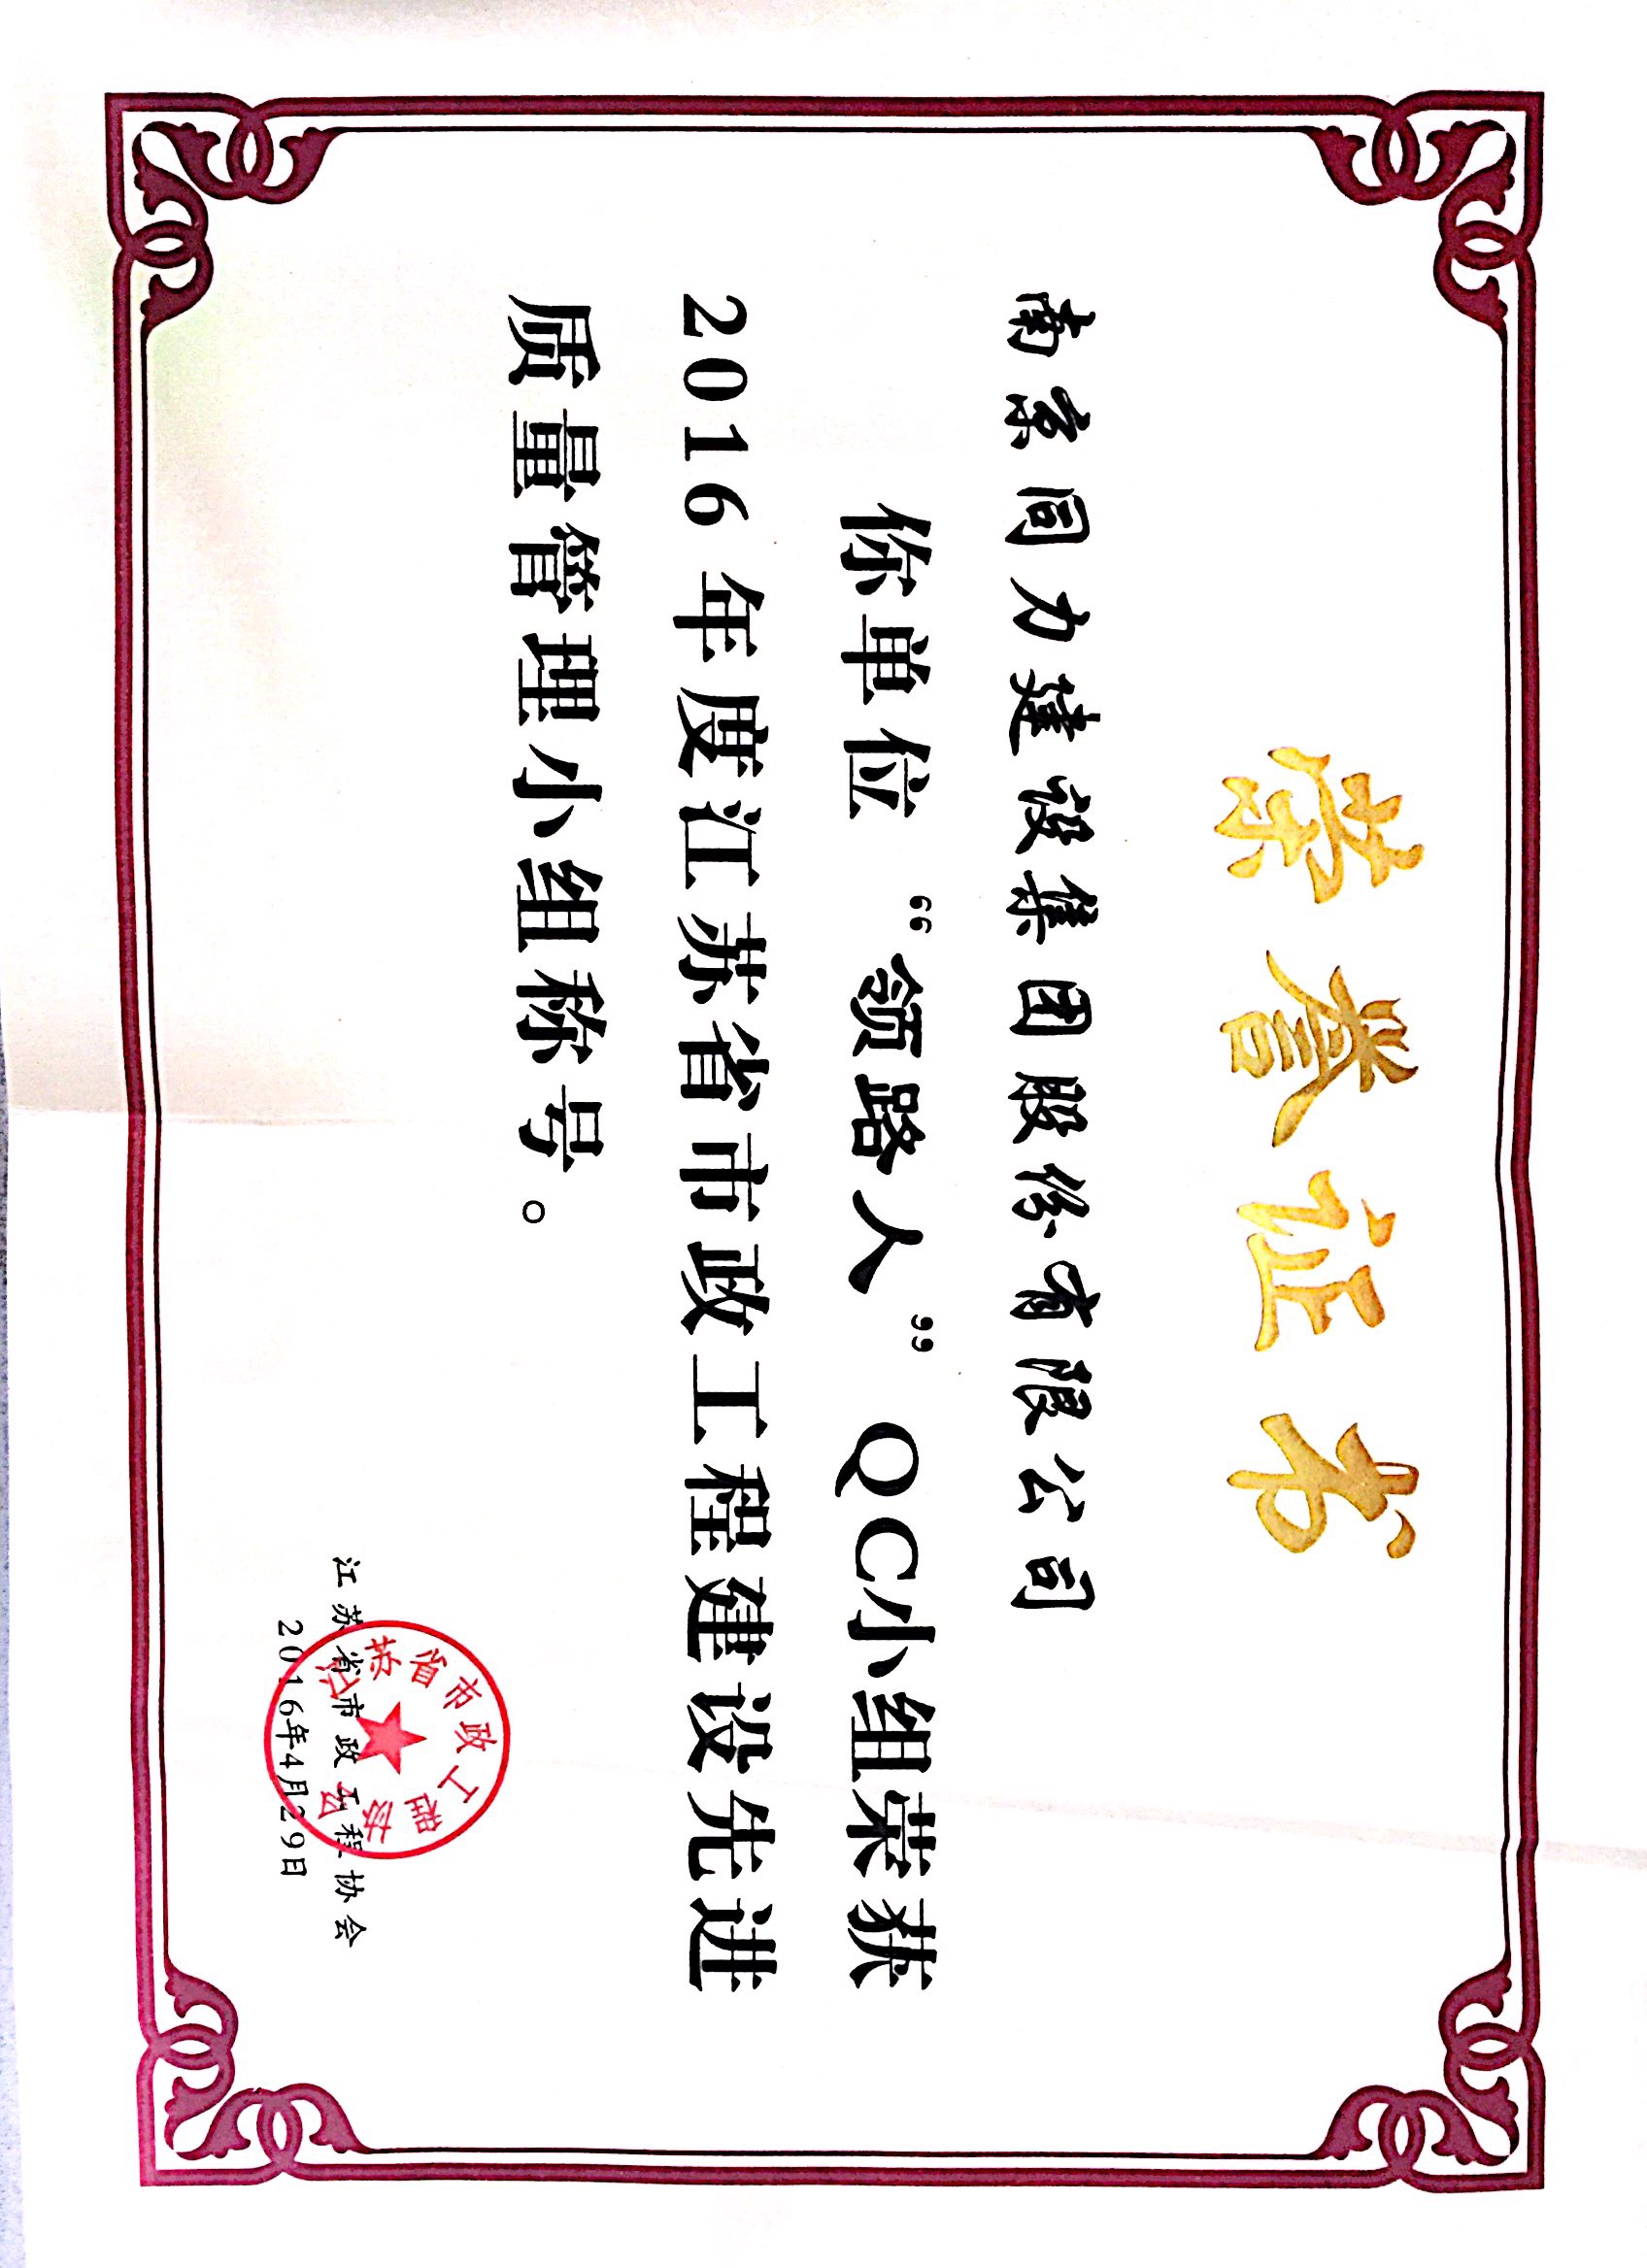 荣誉证书
南京同力建设集团股份有限公司
你单位 “领路人” QC小组荣获
2016年度江苏省市政工程建设先进
质量管理小组称号。
江苏省市政工程协会
2016年4月29日
江苏省市政工程协会